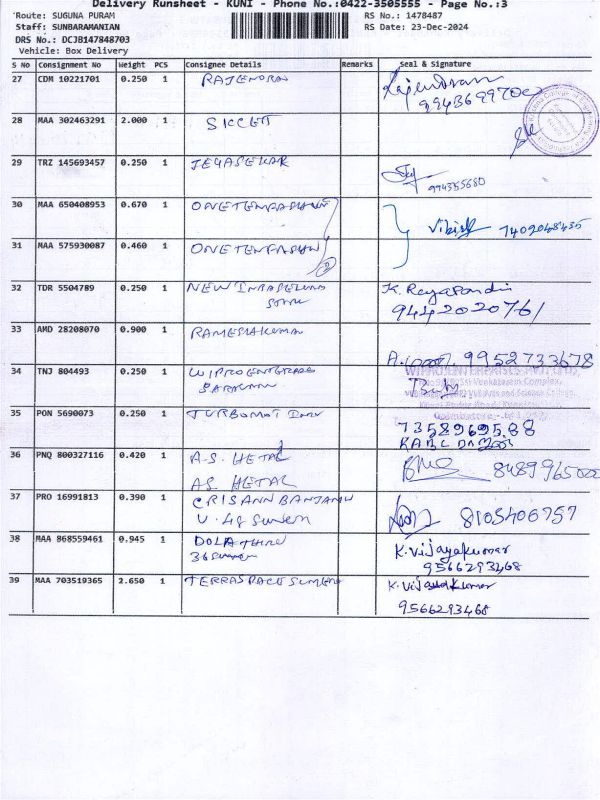 Delivery Runsheet - KUNI - Phone No.:0422-3505555 - Page No.:3
Route: SUGUNA PURAM
RS No.: 1478487
Staff: SUNBARAMANIAN
RS Date: 23-Dec-2024
DRS No.: DCJB147848703
Vehicle: Box Delivery
S No Consignment No Weight PCS Consignee Details Remarks Seal & Signature
27 CDM 10221701 0.250 1 RAJENDRAN Rajendran
9943699700
28 MAA 302463291 2.000 1 SKCET
29 TRZ 145693457 0.250 1 JEYASEKAR
994355680
30 MAA 650408953 0.670 1 ONETENFASHION
7409048435
31 MAA 575930087 0.460 1 ONETENFASHION
2
32 TDR 5504789 0.250 1 NEW K. Rayapandi
9442020761
33 AMD 28208070 0.900 1 RAMESHKUMAR
9952733678
34 TNJ 804493 0.250 1 WIPRO ENTERPRISES
WIPRO ENTERPRISES PVT. LTD.,
35 PON 5690073 0.250 1 TURBOMOT
7358969588
36 PNQ 800327116 0.420 1 A.S. HETAL
8489965022
AS HETAL
37 PRO 16991813 0.390 1 CRISANN BANJAMU
V.48 8105406757
38 MAA 868559461 0.945 1 DOLA K. Vijayakumar
36 9566293468
39 MAA 703519365 2.650 1 TERRASPACE K. Vijayakumar
9566293468